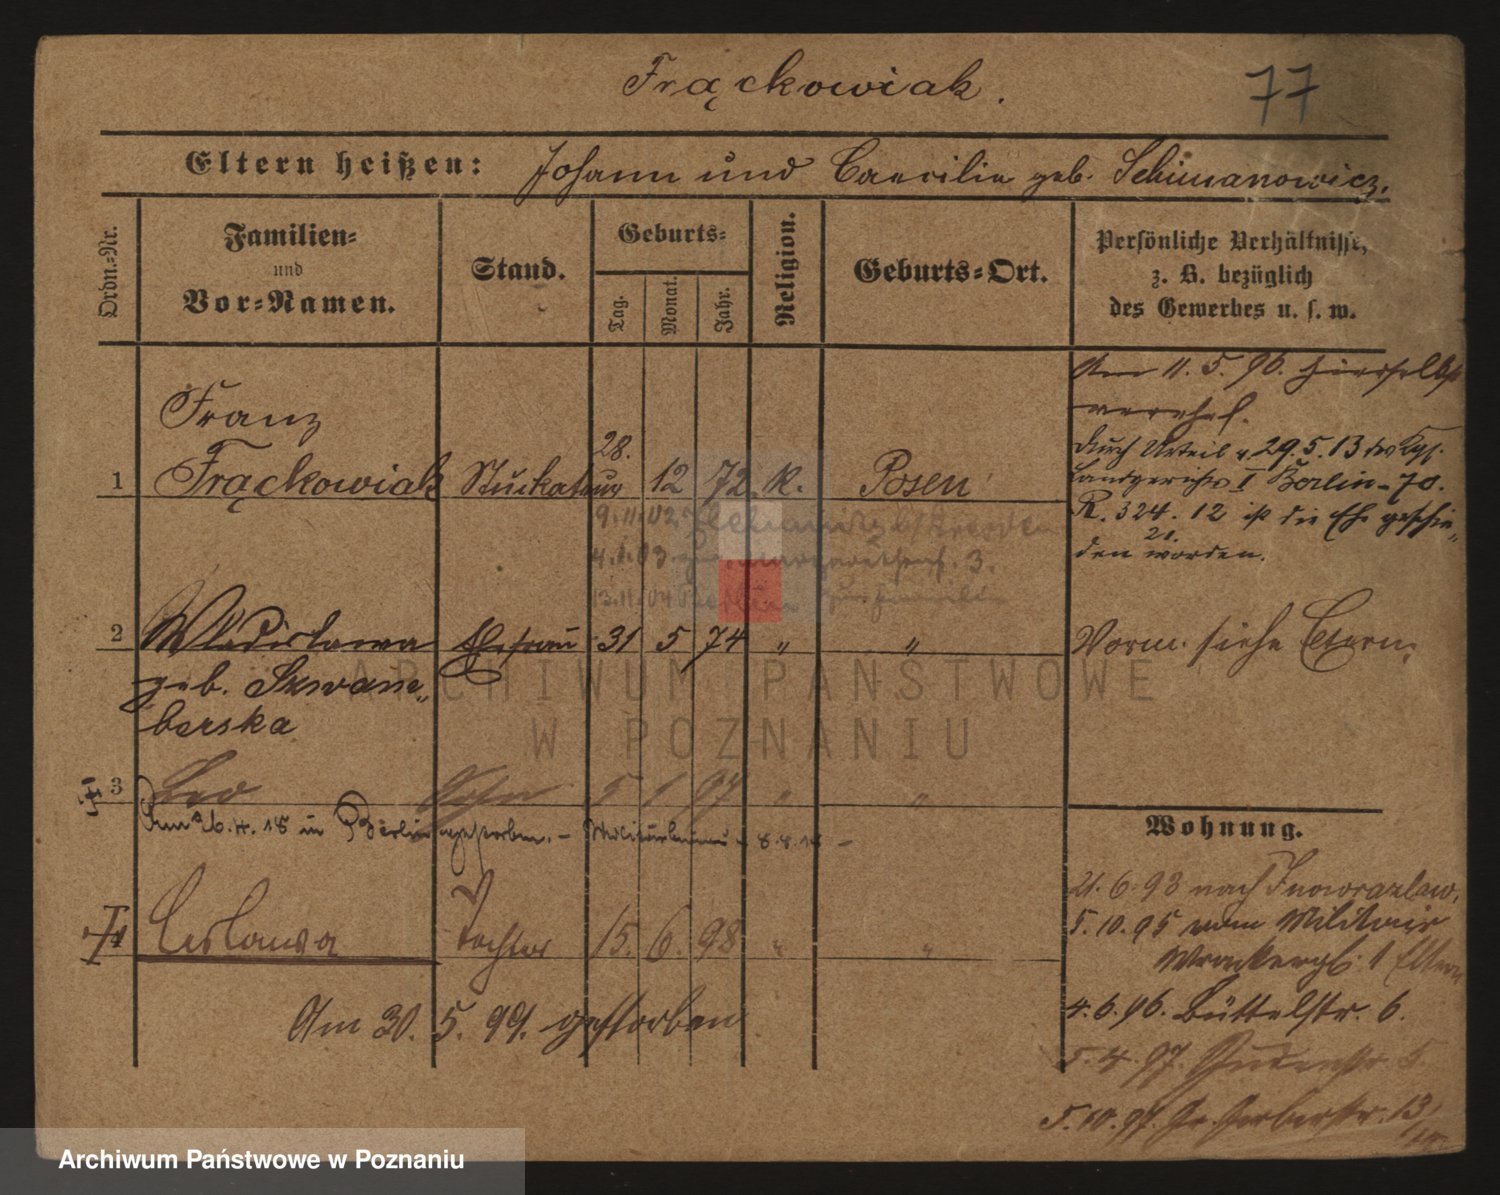 Frąckowiak.
77
Eltern heißen: Johann und Caecilie geb. Schimanowicz.
Ordn.-Nr.
Familien-
und
Vor-Namen.
Stand.
Geburts-
Tag.
Monat.
Jahr.
Religion.
Geburts-Ort.
Persönliche Verhältnisse,
z. B. bezüglich
des Gewerbes u. s. w.
Am 11. 5. 96. hierselbst
vereh.
Franz
1 Frąckowiak Stuckateur 28. 12 72. K. Posen
durch Urteil v. 29. 5. 13 des Kgl.
Landgerichts I Berlin - 70.
R. 324. 12 ist die Ehe geschie-
den worden.
9. 11. 02
4. 1. 03 3.
13. 11. 04 Berlin zur Familie
2 Wladislawa Ehefrau 31 5 74 " "
geb. Szwane-
berska
Vorm. siehe Eltern.
3 Leo Sohn 5 1 97 " "
Am 26. 4. 18 in Berlin gestorben. - 8. 8. 18 -
4 Ceslawa Tochter 15. 6. 98 " "
Am 30. 5. 99. gestorben
Wohnung.
21. 6. 93 nach Inowrazlaw.
5. 10. 95 vom Militair
Wronkerpl. 1 Eltern
4. 6. 96. Büttelstr. 6.
5. 4. 97. Judenstr 5.
5. 10. 97. Gr. Gerberstr. 13
ARCHIWUM PAŃSTWOWE
W POZNANIU
Archiwum Państwowe w Poznaniu